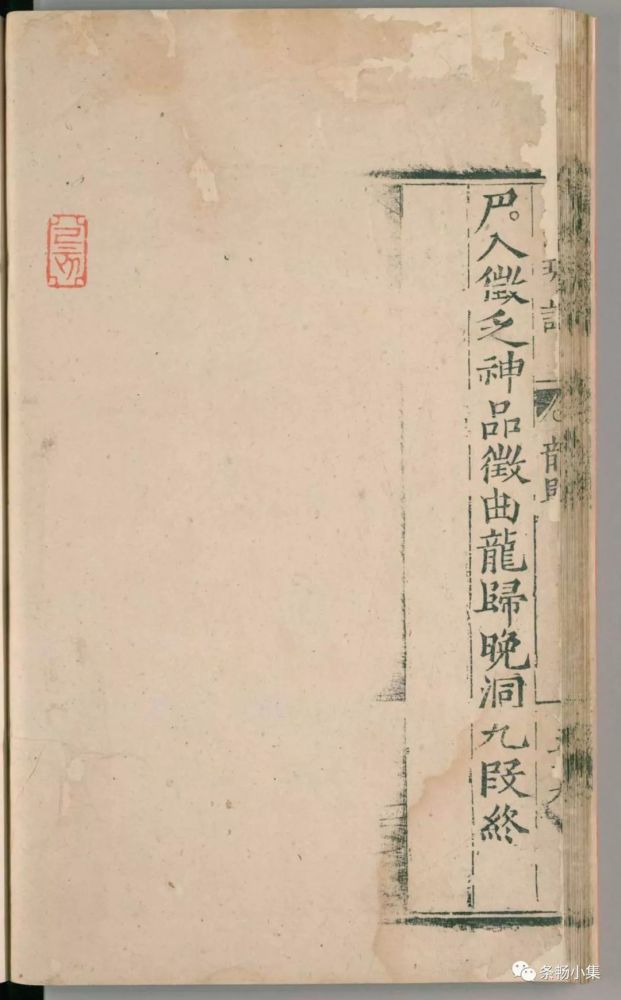 尸。入徵乏神品徵曲龍歸晚洞九段終
龍歸
条畅小集